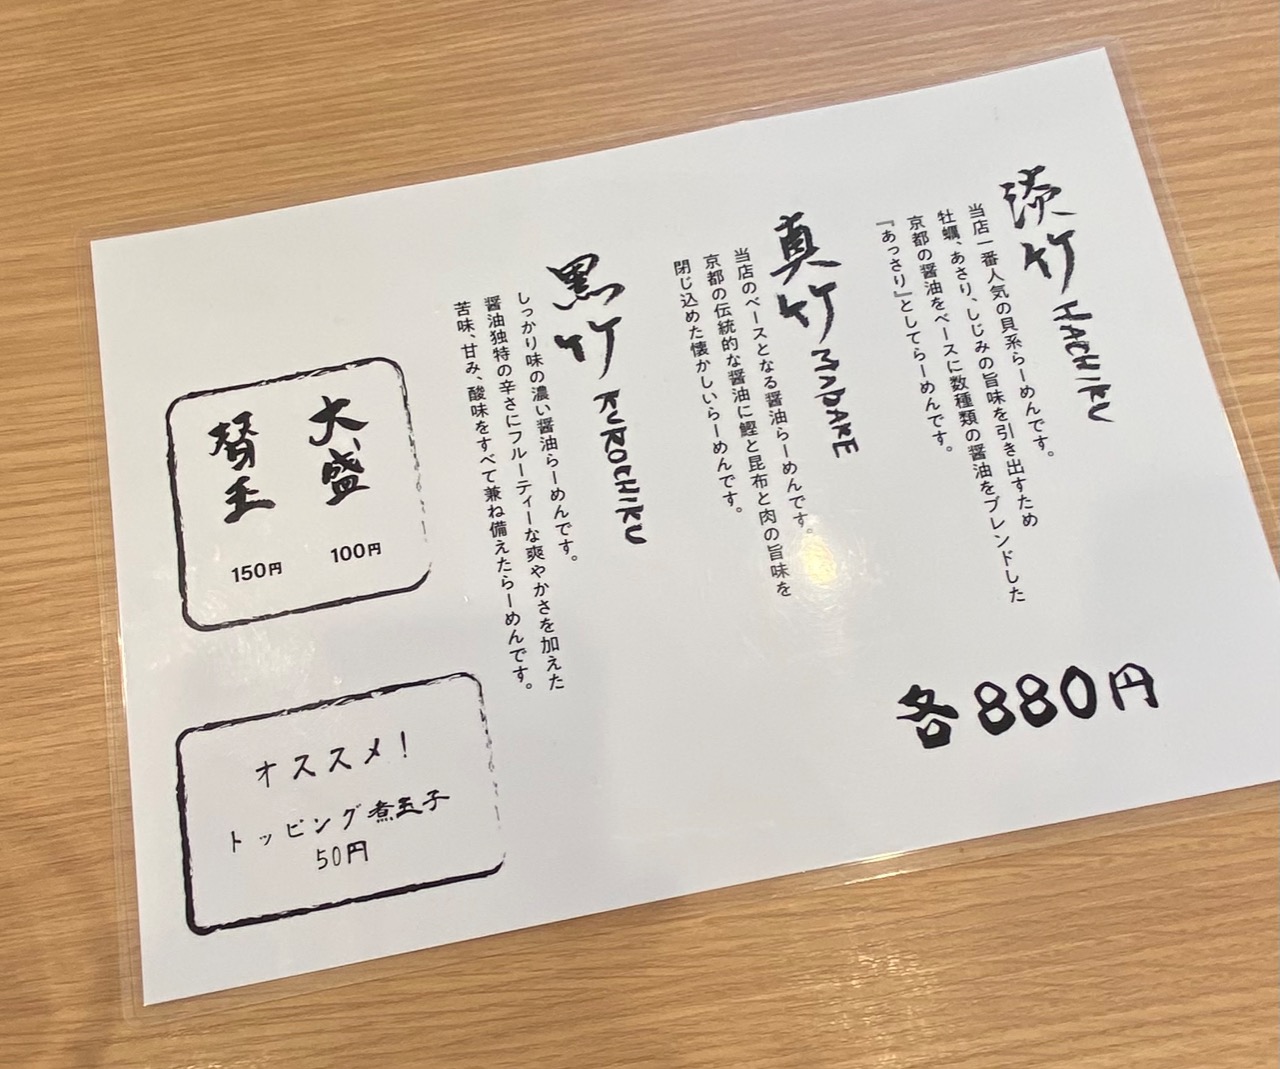 淡竹 HACHIKU
当店一番人気の貝系らーめんです。
牡蠣、あさり、しじみの旨味を引き出すため
京都の醤油をベースに数種類の醤油をブレンドした
『あっさり』としてらーめんです。
真竹 MADAKE
当店のベースとなる醤油らーめんです。
京都の伝統的な醤油に鰹と昆布と肉の旨味を
閉じ込めた懐かしいらーめんです。
黒竹 KUROCHIKU
しっかり味の濃い醤油らーめんです。
醤油独特の辛さにフルーティーな爽やかさを加えた
苦味、甘み、酸味をすべて兼ね備えたらーめんです。
各880円
大盛 100円
替玉 150円
オススメ！
トッピング煮玉子
50円